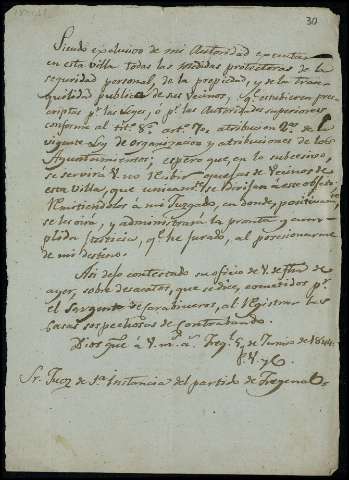 30
Siendo exclusivo de mi Autoridad ejecutar
en esta villa todas las medidas protectoras de la
seguridad personal, de la propiedad, y de la tran-
quilidad publica de sus Vecinos, qe. estubieren pres-
criptas pr. las Leyes, ó pr. las Autoridades superiores
conforme al tit. 6º. art. 70. atribucion 2ª. de la
vigente Ley de organizacion y atribuciones de los
Ayuntamientos; espero que, en lo subcesivo,
se servirá V. no recibir quejas de Vecinos de
esta villa, que unicamte. se dirijan á este objeto,
remitiendolos á mi Juzgado, en donde, positivamte.
se les oirá, y administrará la pronta y cum-
plida justicia, qe. he jurado, al posesionarme
de mi destino.
Asi dejo contestado su oficio de V. de fha. de
ayer, sobre desacatos, que se dice, cometidos pr.
el Sargento de Carabineros, al registrar las
casas sospechosas de Contrabando.
Dios gue. á V. m. a. Freg. 5 de Junio de 1844.
Sr. Juez de 1ª. Instancia del partido de Fregenal